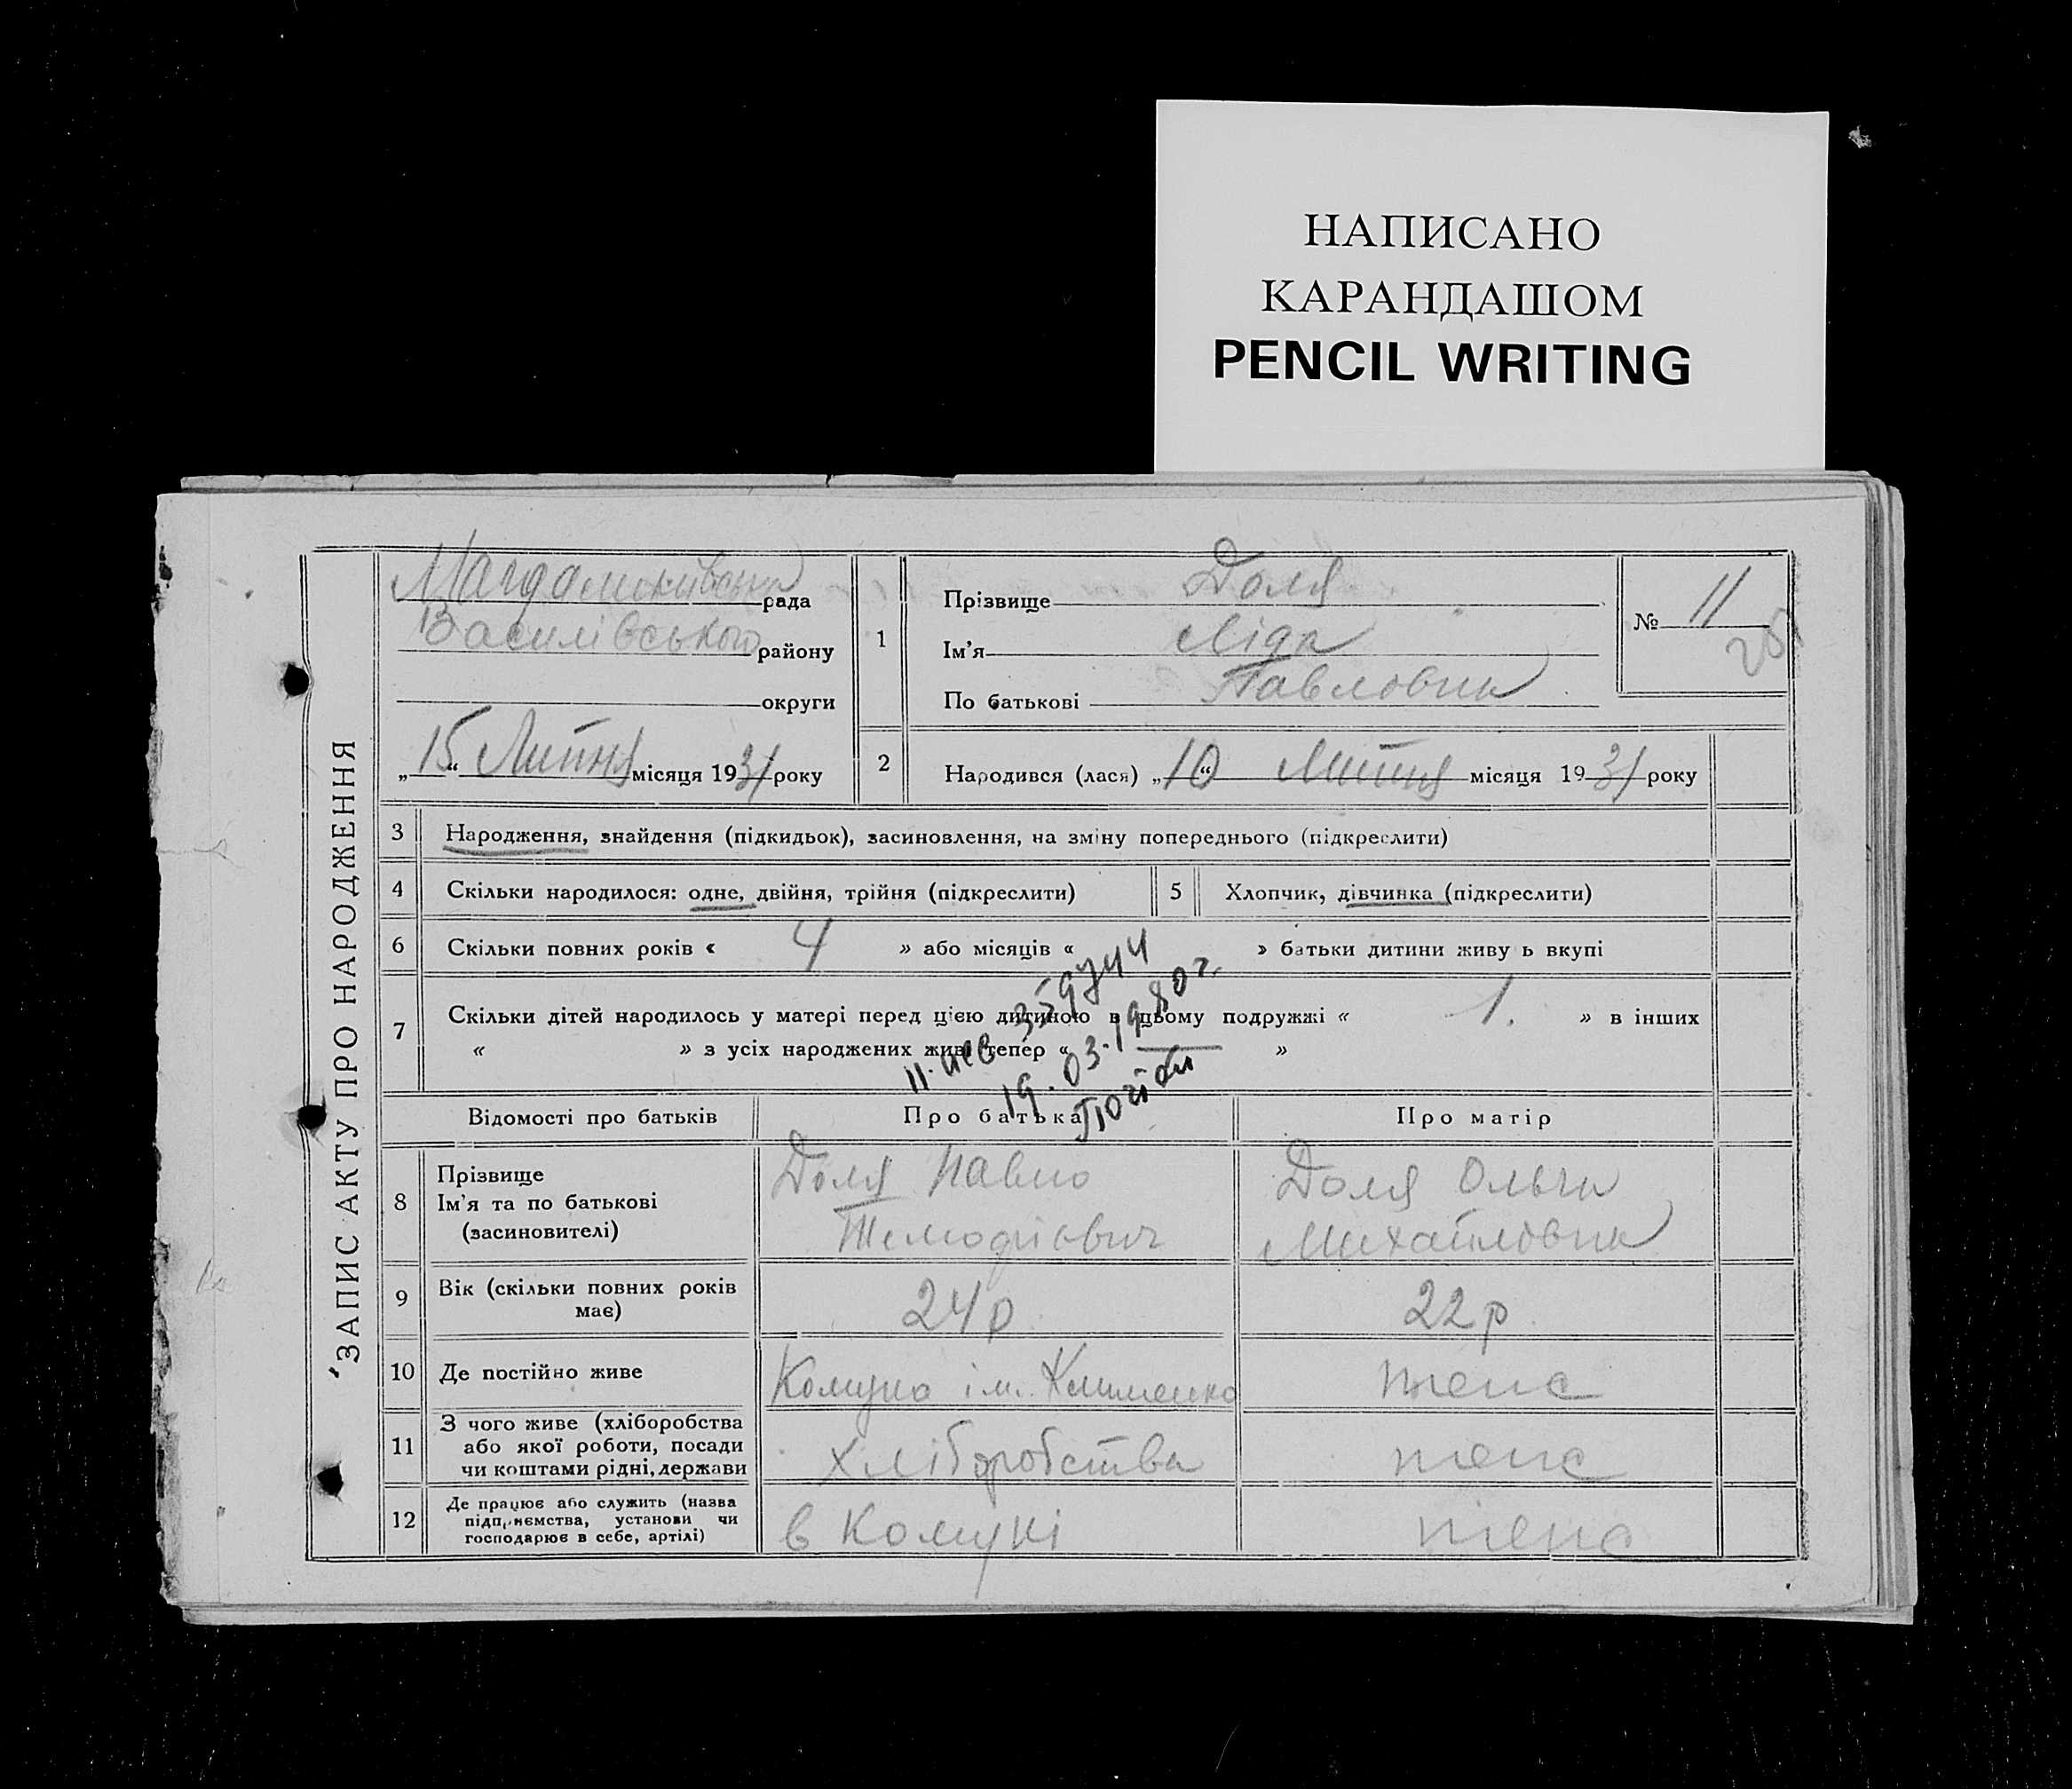 НАПИСАНО
КАРАНДАШОМ
PENCIL WRITING
ЗАПИС АКТУ ПРО НАРОДЖЕННЯ
рада
Василівського району
округи
„15“ Липня місяця 1931 року
1
Прізвище Доля
Ім'я Ліда
По батькові Павловна
№ 11
2 Народився (лася) „10“ Липня місяця 1931 року
3 Народження, знайдення (підкидьок), засиновлення, на зміну попереднього (підкреслити)
4 Скільки народилося: одне, двійня, трійня (підкреслити) 5 Хлопчик, дівчинка (підкреслити)
6 Скільки повних років « 4 » або місяців « » батьки дитини живу ь вкупі
7 Скільки дітей народилось у матері перед цією дитиною в цьому подружжі « 1. » в інших
« » з усіх народжених живі тепер « »
19.03.1980 г.
Відомості про батьків Про батька Про матір
8 Прізвище
Ім'я та по батькові
(засиновителі)
Доля Павло
Доля Ольга
Михайловна
9 Вік (скільки повних років
має)
24 р 22 р
10 Де постійно живе Комуна ім. Клименко тепс
11 З чого живе (хліборобства
або якої роботи, посади
чи коштами рідні, держави
хліборобства тепс
12 Де працює або служить (назва
підприємства, установи чи
господарює в себе, артілі)
в Комуні тепс